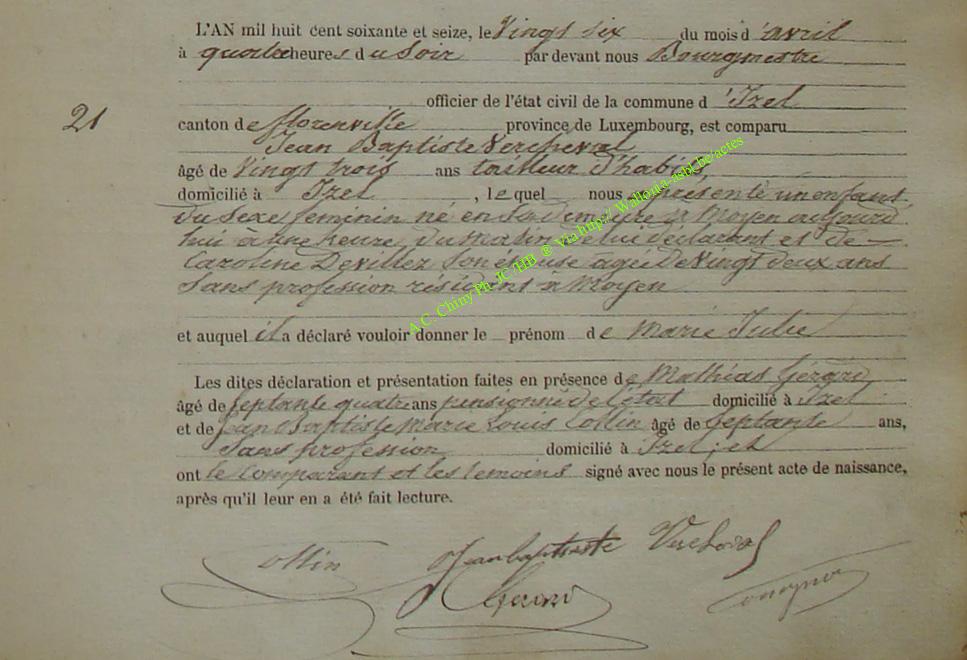 L'AN mil huit cent soixante et seize, le Vingt six du mois d'avril
à quatre heures du Soir par devant nous Bourgmestre
officier de l'état civil de la commune d'Izel
21
canton de florenville province de Luxembourg, est comparu
Jean Baptiste Vercheval
âgé de Vingt trois ans tailleur d'habits,
domicilié à Izel, lequel nous a présenté un enfant
du sexe feminin né en sa demeure à Moyen aujourd
hui à une heure du matin de lui déclarant et de
Caroline Devillez son épouse agée de Vingt deux ans
Sans profession résidant à Moyen
et auquel il a déclaré vouloir donner le prénom de Marie Julie
Les dites déclaration et présentation faites en présence de Mathias Gérard
âgé de Septante quatre ans pensionné de l'état domicilié à Izel
et de Jean Baptiste Marie Louis Collin âgé de Septante ans,
Sans profession domicilié à Izel, et
ont le Comparant et les temoins signé avec nous le présent acte de naissance,
après qu'il leur en a été fait lecture.
Collin Jean baptiste Vercheval
Gerard
A.C. Chiny Ph. JC /HB ® Via http:// Wallonia-asbl.be/actes